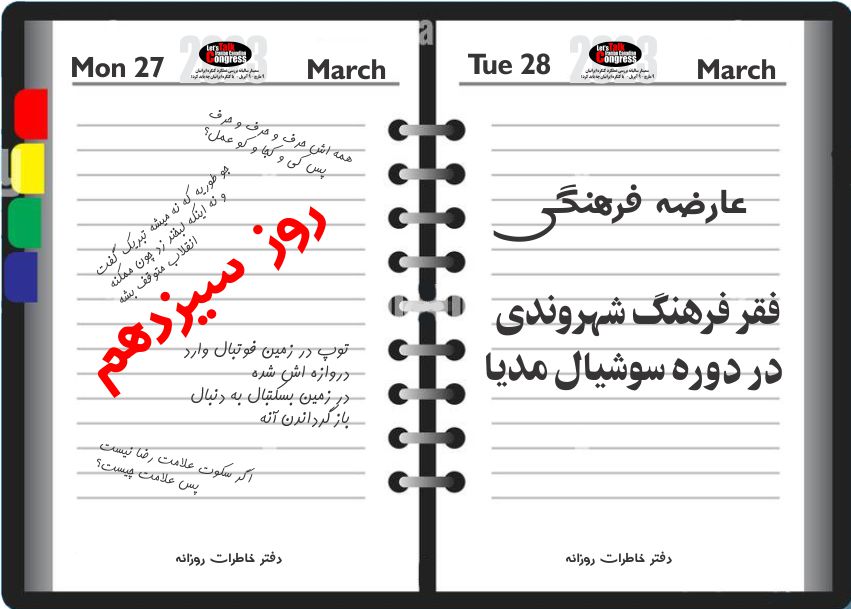 Mon 27
2023
Let's Talk
Iranian Canadian
Congress
March
همه اش حرف و حرف و حرف
پس کی و کجا و کو عمل؟
جو طوریه که نه میشه تبریک گفت
و نه اینکه لبخند زد چون ممکنه
انقلاب متوقف بشه
روز سیزدهم
توپ در زمین فوتبال وارد
دروازه اش شده
در زمین بسکتبال به دنبال
باز گرداندن آنه
اگر سکوت علامت رضا نیست
پس علامت چیست؟
دفتر خاطرات روزانه
Tue 28
2023
Let's Talk
Iranian Canadian
Congress
March
عارضه فرهنگی
فقر فرهنگ شهروندی
در دوره سوشیال مدیا
دفتر خاطرات روزانه